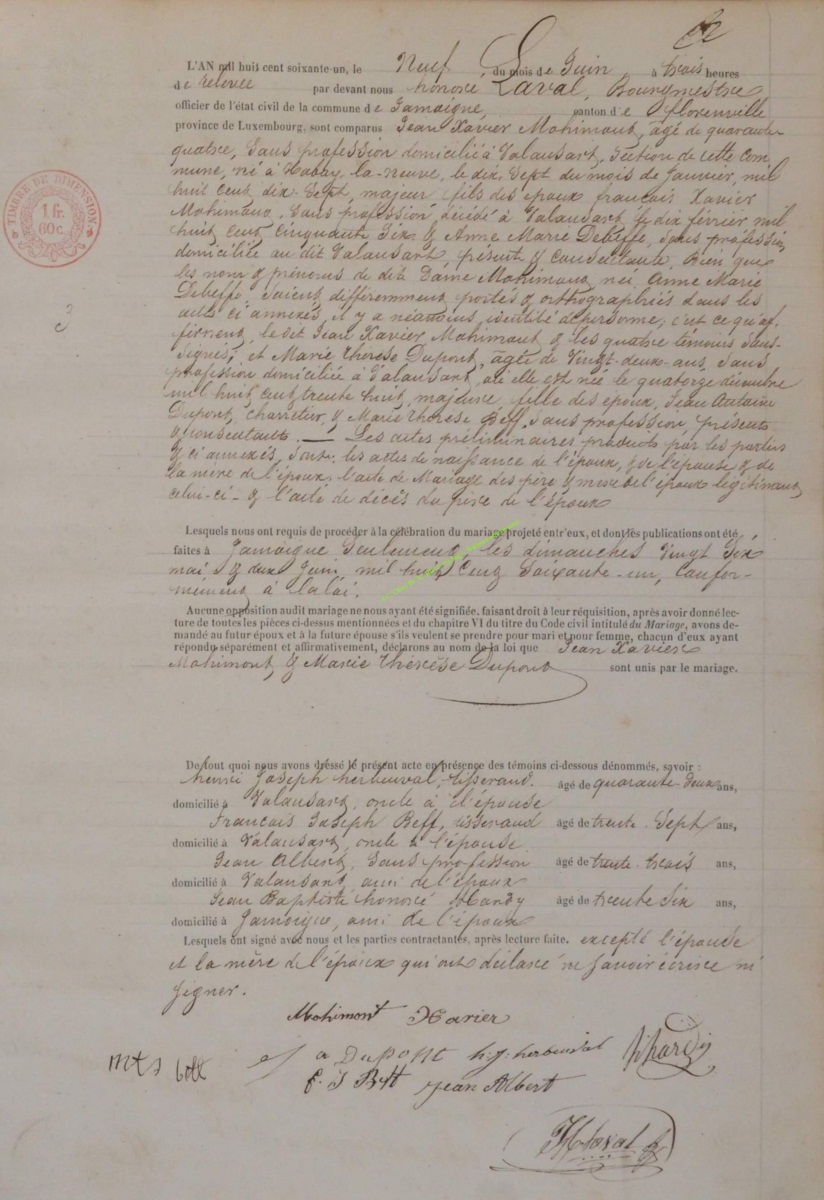 L'AN mil huit cent soixante-un, le Neuf du mois de Juin à trois heures
de relevée par devant nous honoré Laval, Bourgmestre
officier de l'état civil de la commune de Jamoigne, canton d'e florenville
province de Luxembourg, sont comparus Jean Xavier Mohimont, agé de quarante
quatre, Sans profession domicilié à Valansart, Section de cette Com
mune, né à Habay-la-neuve, le dix Sept du mois de Janvier, mil
huit cent dix-Sept, majeur fils des epoux francais Xavier
Mohimont, Sans profession, décédé à Valansart, le dix février mil
huit Cent Cinquante Six & Anne Marie Debeffe, Sans profession,
domiciliée au dit Valansart, présente & Consentante, Bien que
les nom & prénoms de dite Dame Mohimont, née Anne Marie
Debeffe, Soient différemment portés & orthographiés dans les
actes ci annexés, il y a néanmoins identité de personne, c'est ce qu'af-
firment, le dit Jean Xavier Mohimont & les quatre témoins Sous-
Signés; et Marie thérèse Dupont, agée de Vingt-deux-ans, Sans
profession domiciliée à Valansart, où elle est née le quatorze décembre
mil huit Cent trente huit, majeure fille des epoux, Jean Antoine
Dupont, charretier, & Marie thérèse Beff, Sans profession, présents
& consentants. — Les actes préliminaires produits par les parties
& ci annexés, Sont: les actes de naissance de l'époux, & de l'épouse & de
la mère de l'époux, l'acte de Mariage des père & mère de l'époux legitimant
celui-ci - & l'acte de décès du père de l'époux
Lesquels nous ont requis de procéder à la célébration du mariage projeté entr'eux, et dont les publications ont été
faites à Jamoigne Seulement, les dimanches Vingt Six
mai & deux Juin, mil huit Cent Soixante-un, Confor-
mément à la loi.
Aucune opposition audit mariage ne nous ayant été signifiée, faisant droit à leur réquisition, après avoir donné lec-
ture de toutes les pièces ci-dessus mentionnées et du chapitre VI du titre du Code civil intitulé du Mariage, avons de-
mandé au futur époux et à la future épouse s'ils veulent se prendre pour mari et pour femme, chacun d'eux ayant
répondu séparément et affirmativement, déclarons au nom de la loi que Jean Xavier
Mohimont, & Marie Thérèse Dupont sont unis par le mariage.
De tout quoi nous avons dressé le présent acte en présence des témoins ci-dessous dénommés, savoir :
henri Joseph herbeuval, tisserand. âgé de quarante-deux ans,
domicilié à Valansart, oncle à l'épouse
Francois Joseph Beff, tisserand âgé de trente-Sept ans,
domicilié à Valansart, oncle à l'épouse
Jean Albert, Sans profession âgé de trente-trois ans,
domicilié à Valansart, ami de l'époux
Jean Baptiste honoré Hardy âgé de trente Six ans,
domicilié à Jamoigne, ami de l'époux
Lesquels ont signé avec nous et les parties contractantes, après lecture faite. excepté l'épouse
et la mère de l'époux qui ont déclaré ne Savoir écrire ni
Signer.
Mohimont Xavier
a Dupont h. j. herbeuval hhardy
f. J Beff jean Albert
mts
HLaval
TIMBRE DE DIMENSION
1 fr.
60 c.